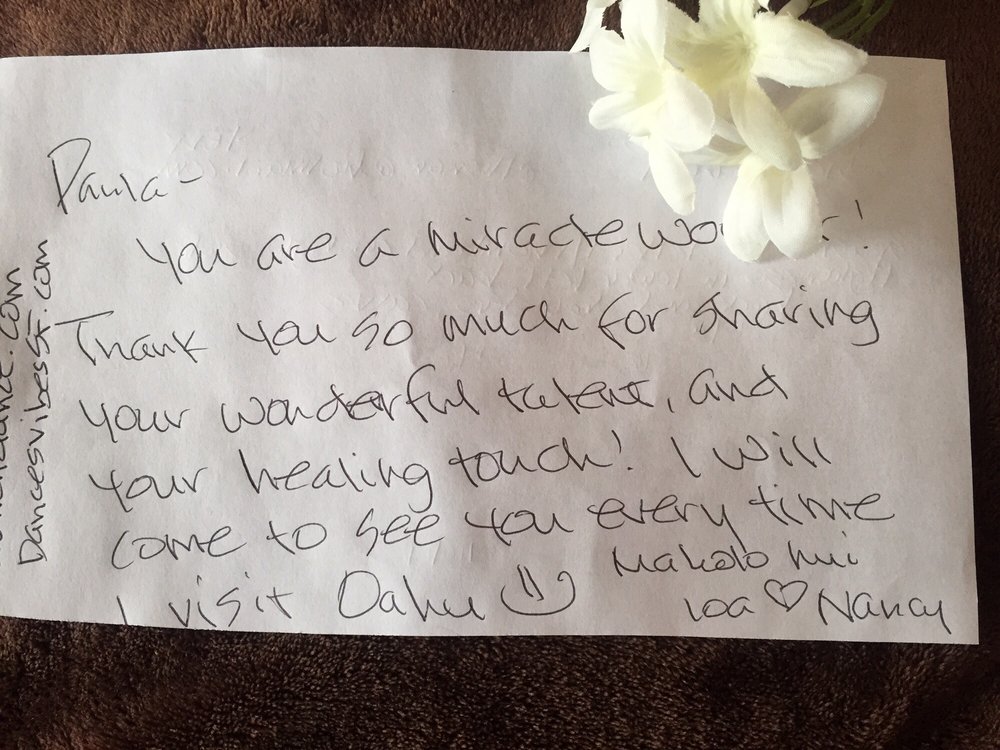 Paula-
You are a miracle wo r!
Thank you so much for sharing
your wonderful talent, and
your healing touch! I will
come to see you every time
I visit Oahu
Mahalo nui
loa ♡ Nancy
Dancesvibes5f.com